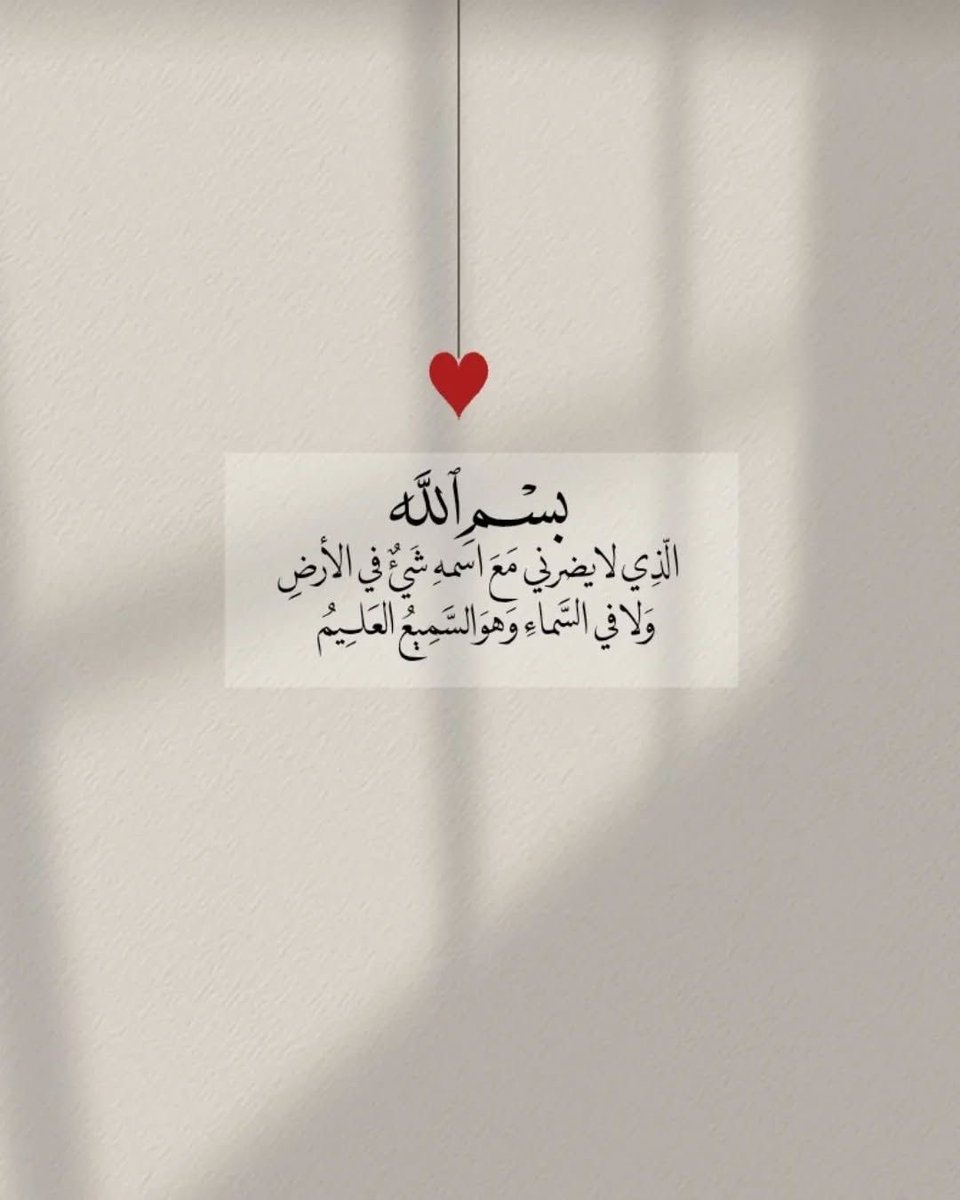 بِسْمِ ٱللَّه
الّذِي لا يضرني مَعَ اسَمهِ شَيْءٌ في الأرضِ
وَلا في السَّماءِ وَهوَ السَّمِيعُ العَلـِيمُ